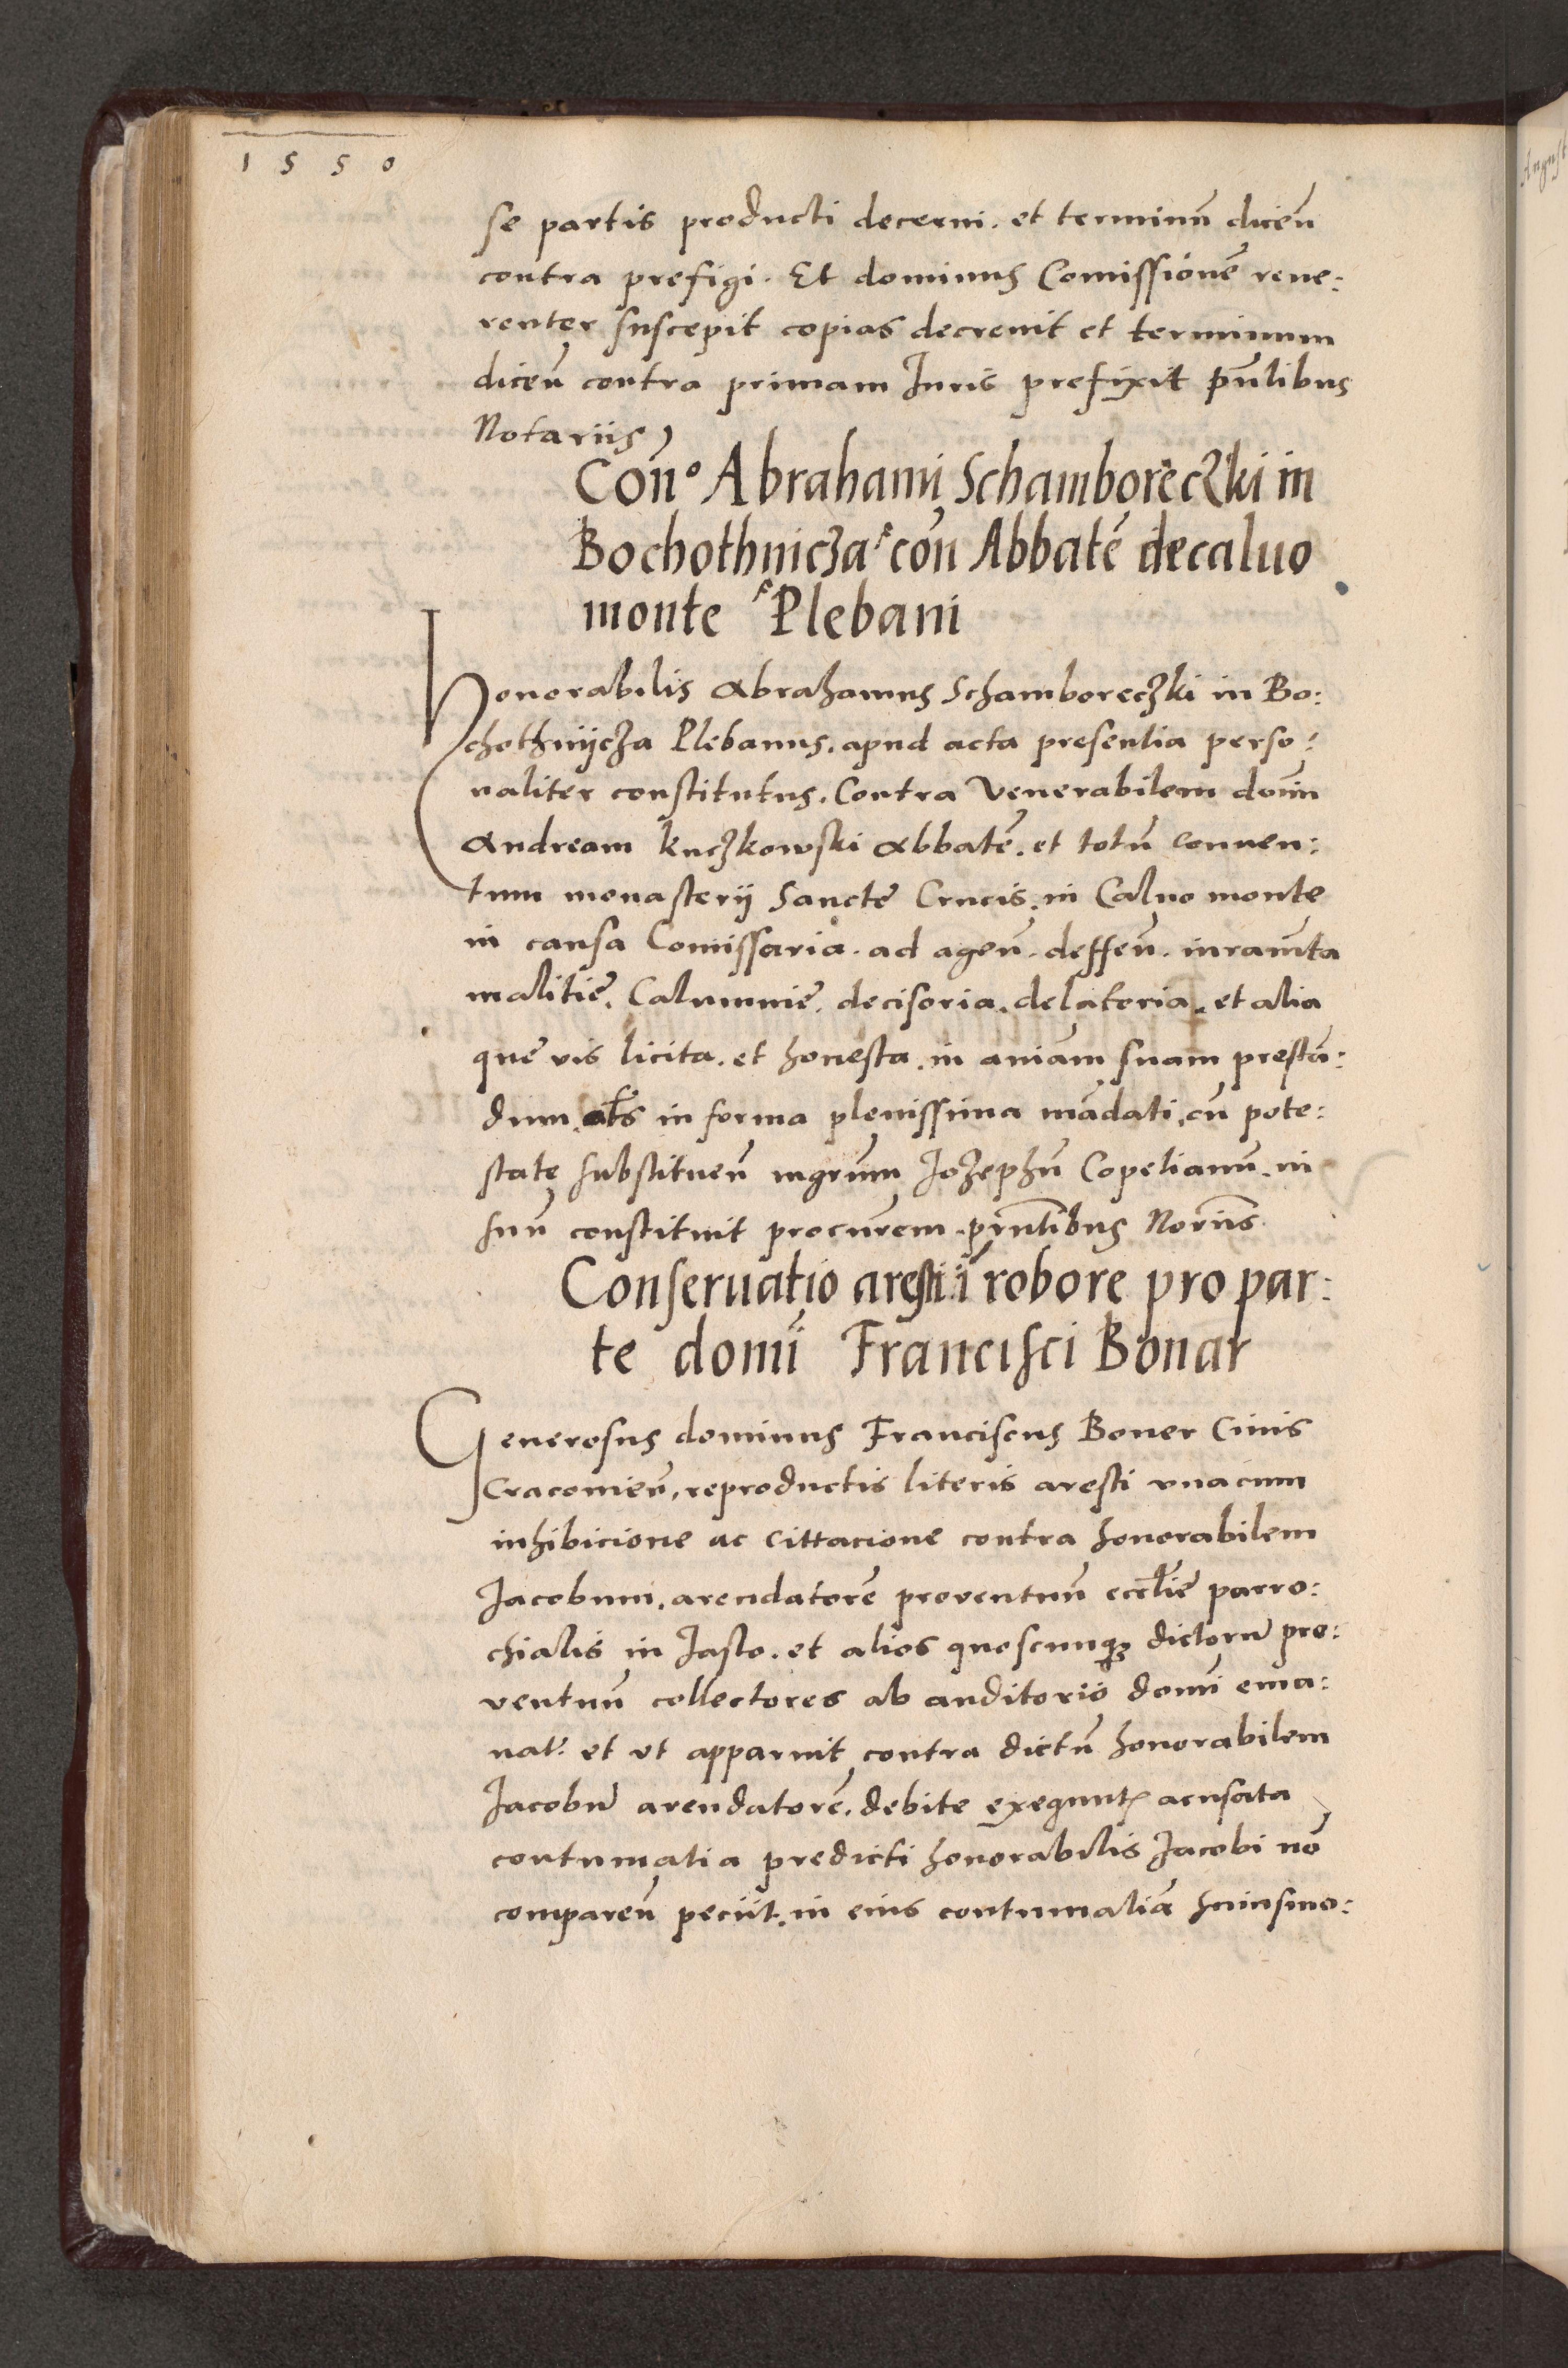 1550
se partis producti decerni. et terminū diceñ
contra prefigi. Et dominus Comissionē reue:
renter suscepit copias decreuit et terminum
diceñ contra primam Iuris prefixit pñtibus
Notariis
Coñº Abrahami Schamboreczki in
Bochothnicza con Abbatē de caluo
monte Plebani
Honorabilis Abrahamus Schamboreczki in Bo:
chothnijcza Plebanus. apud acta presentia perso:
naliter constitutus. Contra Venerabilem domĩn
Andream kuczkowski Abbatē. et totū conuen:
tum monasterij Sancte Crucis. in Caluo monte
in causa Comissaria. ad ageñ. deffeñ. iuramta
malitie. Calumnie. decisoria. delatoria. et alia
que vis licita. et honesta. in aniam suam prestā:
dum. als in forma plenissima mādati. cū pote:
state substitueñ mgrum Jozephū Copetianū. in
suū constituit procurem. prñtibus Noriis
Conseruatio aresti i robore pro par:
te domi Francisci Bonar
Generosus dominus Franciscus Boner Ciuis
Cracouieñ. reproductis literis aresti vnacum
inhibicione ac cittacione contra honorabilem
Jacobum. arendatorē prouentuū ecclie parro:
chialis in Jaslo. et alios quoscunqz dictorū pro:
ventuū collectores ab auditorio domi ema:
nat. et vt apparuit contra dictū honorabilem
Jacobū arendatorē. debite exequut acusata
contumatia predicti honorabilis Jacobi nō
compareñ peciit. in eius contumatiā huiusmo: